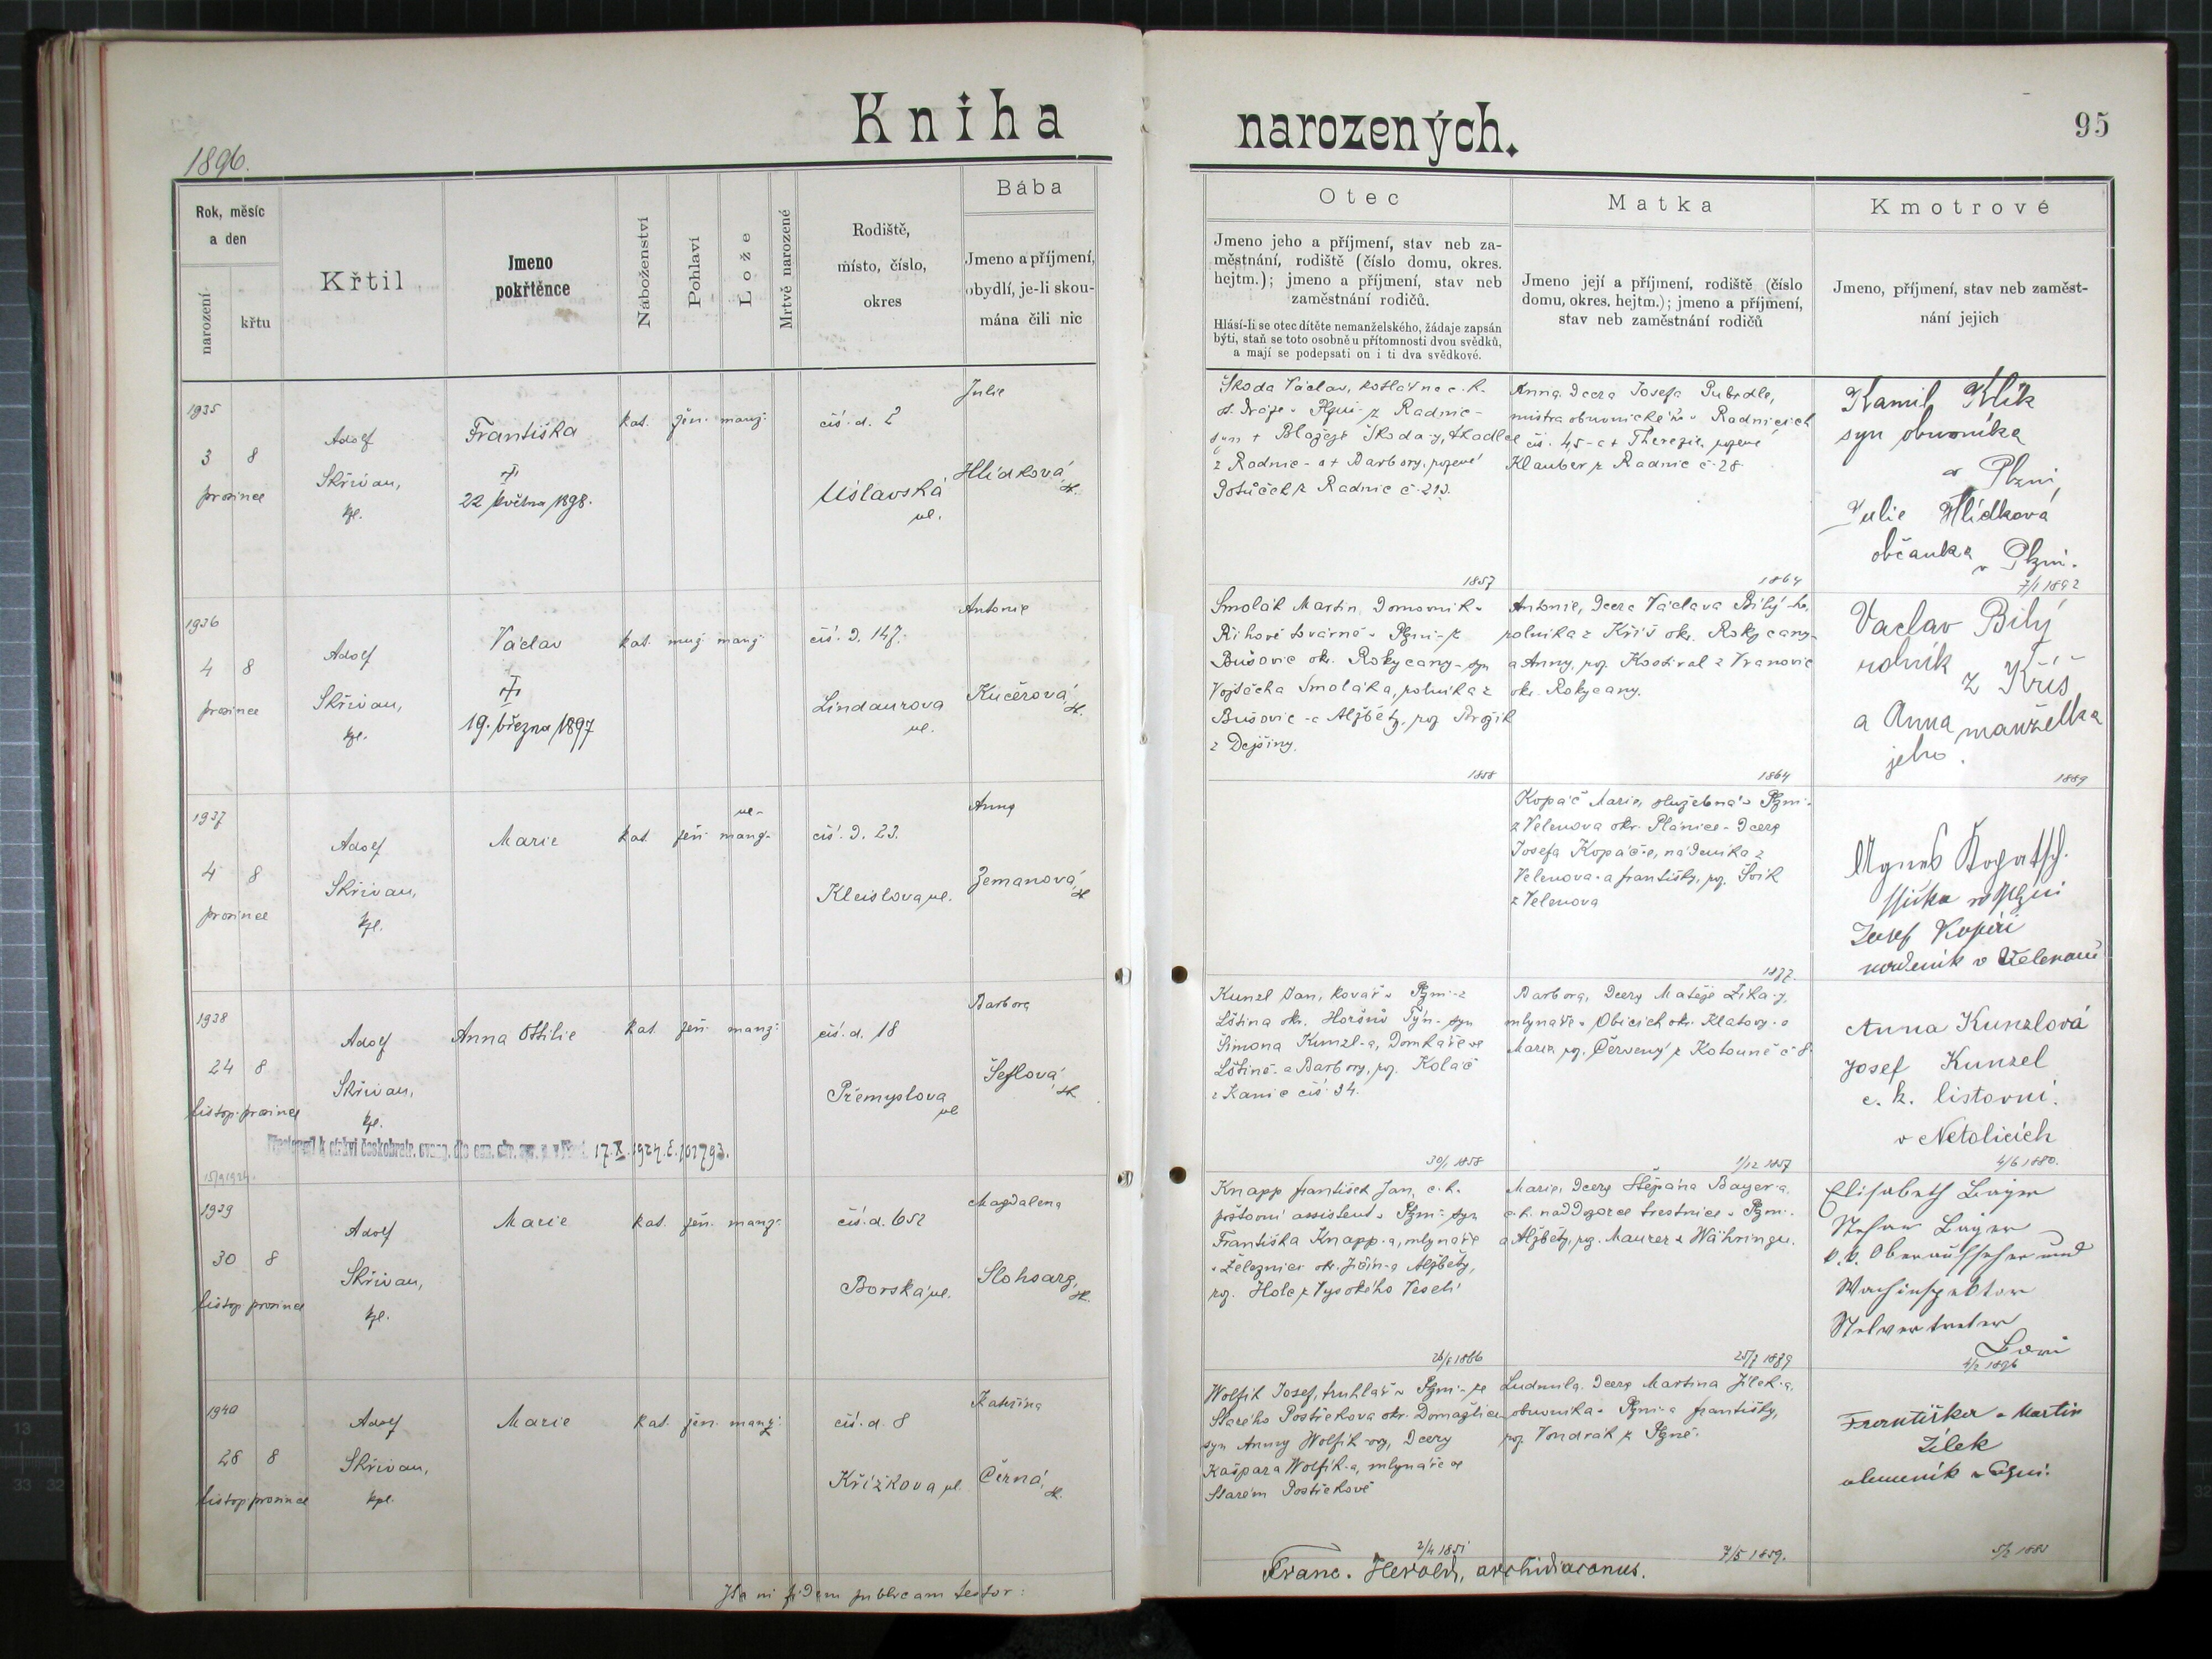 Kniha narozených.
95
1896.
Rok, měsíc
a den
narození
křtu
Křtil
Jmeno
pokřtěnce
Náboženství
Pohlaví
Lože
Mrtvě narozené
Rodiště,
místo, číslo,
okres
Bába
Jmeno a příjmení,
obydlí, je-li skou-
mána čili nic
Otec
Jmeno jeho a příjmení, stav neb za-
městnání, rodiště (číslo domu, okres.
hejtm.); jmeno a příjmení, stav neb
zaměstnání rodičů.
Hlásí-li se otec dítěte nemanželského, žádaje zapsán
býti, staň se toto osobně u přítomnosti dvou svědků,
a mají se podepsati on i ti dva svědkové.
Matka
Jmeno její a příjmení, rodiště (číslo
domu, okres. hejtm.); jmeno a příjmení,
stav neb zaměstnání rodičů
Kmotrové
Jmeno, příjmení, stav neb zaměst-
nání jejich
1935
3 8
prosince
Adolf
Skřivan,
kpl.
Františka
22 května 1898.
kat. žen. manž.
čís. d. 2
Úslavská
ul.
Julie
Hlídková,
Škoda Václav, c. k.
dráze v Plzni z Radnic
syn + Blažeje Škoda-y,
z Radnic a + Barbory, rozené
z Radnic č. 213.
1857
Anna, dcera Josefa
mistra obuvnického v Radnicích
čís. 45 a + Therezie, rozené
Klauber z Radnic č. 28
1864
Kamil Klik
syn obuvníka
v Plzni
Julie Hlídková
občanka v Plzni.
7/1 1892
1936
4 8
prosince
Adolf
Skřivan,
kpl.
Václav
19. března 1897
kat. muž. manž.
čís. d. 147.
Lindaurova
ul.
Antonie
Kučerová,
Smolák Martin, domovník v
továrně v Plzni z
Bušovic okr. Rokycany syn
Vojtěcha Smoláka, rolníka z
Bušovic a Alžběty, roz. Brožík
z Dejšiny.
1858
Antonie, dcera Václava Bílý-ho,
rolníka z Kříš okr. Rokycany
a Anny, roz. Kostival z Vranovic
okr. Rokycany.
1864
Vaclav Bilý
rolník
z Kříš
a Anna manželka
jeho.
1889
1937
4 8
prosince
Adolf
Skřivan,
kpl.
Marie
kat. žen. ne-
manž.
čís. d. 23.
Kleislova ul.
Anna
Zemanová,
Kopáč Marie, služebná v Plzni
z Velenova okr. Plánice dcera
Josefa Kopáč-e, nádeníka z
Velenova a Františky, roz. Švik
z Velenova
1877.
Agnes
v Plzni
Josef
nadeník v
1938
24 8
listop. prosince
Adolf
Skřivan,
kpl.
Anna Ottilie
kat. žen. manž.
čís. d. 18
Přemyslova
ul.
Barbora
Šeflová,
17.X.1924.č.101793.
15/9 1924.
Kunzl Jan, kovář v Plzni z
Lština okr. Horšův Týn syn
Šimona Kunzl-a, domkáře ve
Lštině a Barbory, roz. Koláč
z Kanic čís. 34.
30/1 1858
Barbora, dcera Matěje Zíka-y,
mlynáře v Obicích okr. Klatovy a
Marie, roz. Červený z Kotouně č. 8.
1/12 1857
Anna Kunzlová
Josef Kunzel
c. k. listovní.
v Netolicích
4/6 1880.
1939
30 8
listop. prosince
Adolf
Skřivan,
kpl.
Marie
kat. žen. manž.
čís. d. 652
Borská ul.
Magdalena
Knapp František Jan, c. k.
poštovní assistent v Plzni syn
Františka Knapp-a, mlynáře
v Železnici okr. Jičín a Alžběty,
roz. Holc z Vysokého Veselí
Marie, dcera Štěpána Bayer-a,
c. k. naddozorce trestnice v Plzni
a Alžběty, roz. Maurer z Währingu.
Elisabeth Bayer
Stefan Bayer
k. k. Oberaufseher und
Wachinspektor
Stelvertreter
4/2 1896
1940
28 8
listop. prosince
Adolf
Skřivan,
kpl.
Marie
kat. žen. manž.
čís. d. 8
Křížkova ul.
Kateřina
Černá,
Wolfik Josef, truhlář v Plzni ze
Starého Postřekova okr. Domažlice
syn Anny Wolfik-ovy, dcery
Kašpara Wolfik-a, mlynáře ve
Starém Postřekově
2/4 1851
Ludmila, dcera Martina Jílek-a,
obuvníka v Plzni a Františky,
roz. Vondrák z Plzně.
7/5 1859.
Františka a Martin
Jilek
v Plzni.
Ita in fidem publicam testor:
Franc. Herold, archidiaconus.